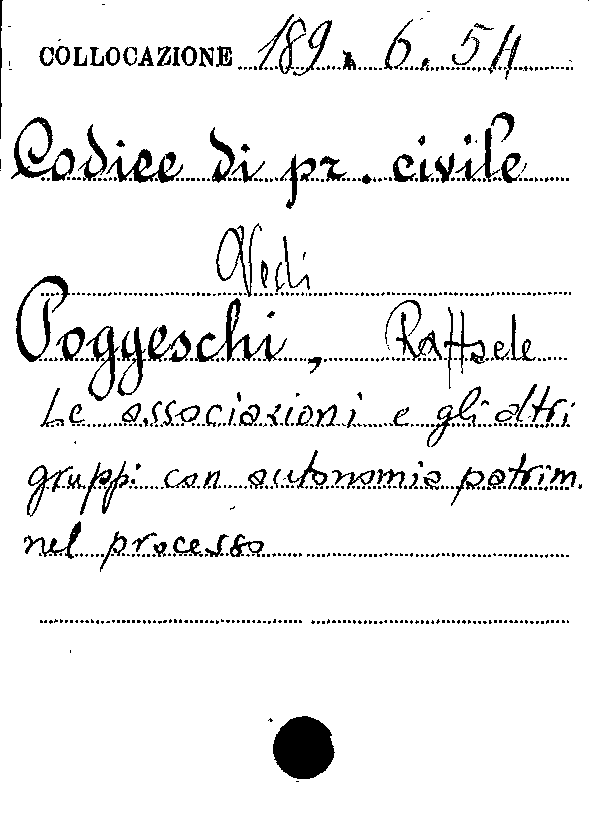 COLLOCAZIONE 189. 6. 54
Codice di pr. civile
Vedi
Poggeschi, Raffaele
Le associazioni e gli altri
gruppi con autonomia patrim.
nel processo